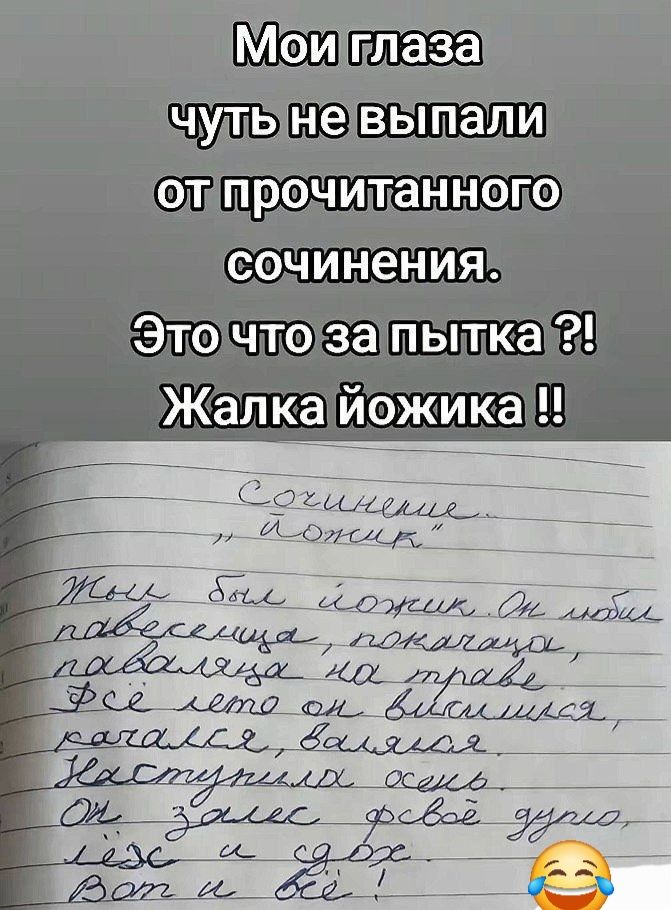 Мои глаза
чуть не выпали
от прочитанного
сочинения.
Это что за пытка ?!
Жалка йожика !!
Сочинение.
„ Йожик"
Жыл был йожик. Он любил
павеселица, покачаца,
паваляца на траве.
Фсё лето он висилился,
качался, валялся.
Наступила осень.
Он залес фсвоё дупло,
лёх и сдох.
Вот и всё !